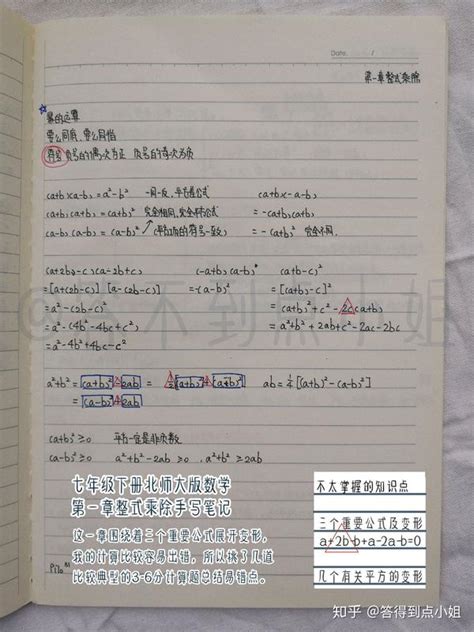 Date. /
第一章整式乘除
幂的运算
要么同底,要么同指
符号 负号的偶次为正 负号的奇次为负
(a+b)(a-b)=a²-b² 一同一反,平方差公式 (a+b)(-a-b)
(a+b)(a+b)=(a+b)² 完全相同,完全平方公式 =-(a+b)(a+b)
(a-b)(a-b)=(a-b)² (平方项的符号一致) =-(a+b)² 完全不同.
(a+2b-c)(a-2b+c) (-a+b)(a-b) (a+b-c)²
=[a+(2b-c)] [a-(2b-c)] =-(a-b)² =[(a+b)-c]²
=a²-(2b-c)² =(a+b)²+c²-2c(a+b)
=a²-(4b²-4bc+c²) =a²+b²+2ab+c²-2ac-2bc
=a²-4b²+4bc-c²
a²+b²=(a+b)²-2ab =½[(a+b)²+(a-b)²] ab=¼[(a+b)²-(a-b)²]
=(a-b)²+2ab
(a+b)²≥0 平方一定是非负数
(a-b)²≥0 a²+b²-2ab≥0 a²+b²≥2ab
七年级下册北师大版数学
第一章整式乘除手写笔记
这一章围绕着三个重要公式展开变形,
我的计算比较容易出错,所以挑了几道
比较典型的3-6分计算题总结易错点。
不太掌握的知识点
三个重要公式及变形
a+2b·b+a-2a-b=0
几个有关平方的变形
@答不到点小姐
知乎 @答得到点小姐